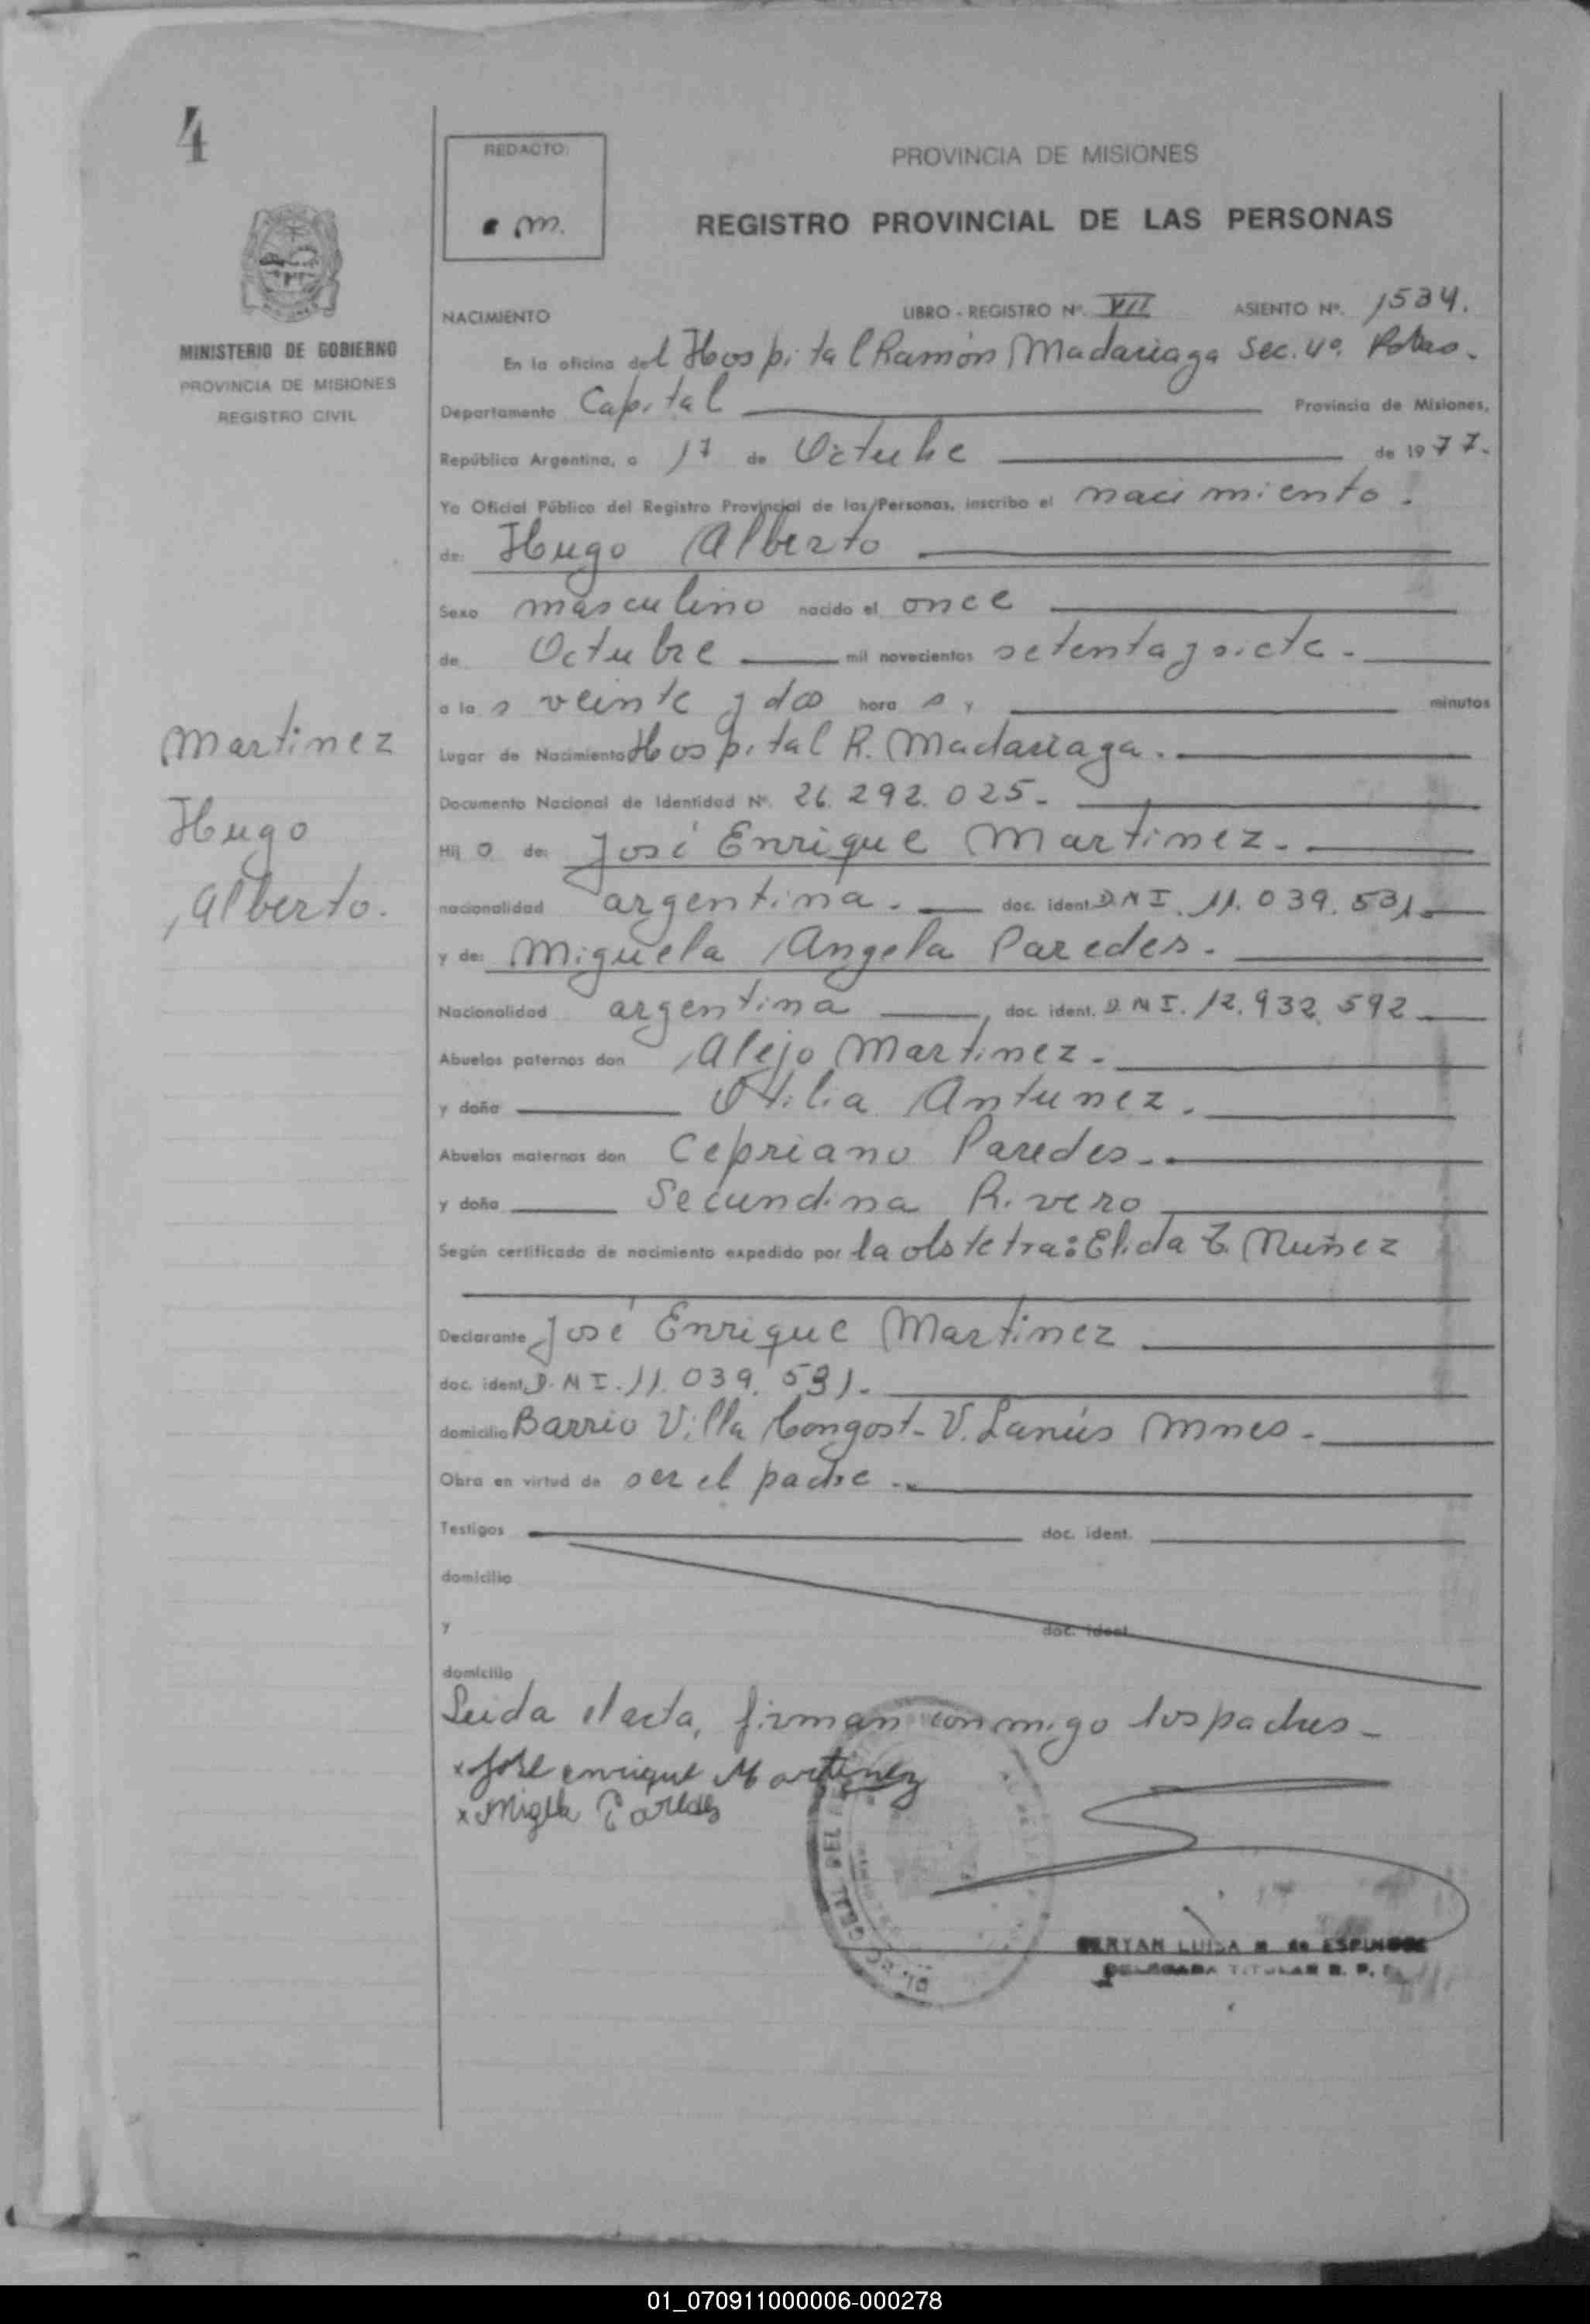 4
REDACTO:
m.
PROVINCIA DE MISIONES
REGISTRO PROVINCIAL DE LAS PERSONAS
MINISTERIO DE GOBIERNO
PROVINCIA DE MISIONES
REGISTRO CIVIL
NACIMIENTO LIBRO - REGISTRO Nº. VII ASIENTO Nº. 1534.
En la oficina del Hospital Ramón Madariaga Sec. 4º. Pdas.
Departamento Capital Provincia de Misiones,
República Argentina, a 17 de Octubre de 1977.
Yo Oficial Público del Registro Provincial de las Personas, inscribo el nacimiento.
de: Hugo Alberto
Sexo masculino nacido el once
de Octubre mil novecientos setenta y siete.
a las veinte y dos horas y minutos
Lugar de Nacimiento Hospital R. Madariaga.
Documento Nacional de Identidad Nº. 26.292.025.
Hijo de: José Enrique Martinez.
nacionalidad argentina. doc. ident. D.N.I. 11.039.531.
y de: Miguela Angela Paredes.
Nacionalidad argentina, doc. ident. D.N.I. 12.932.592
Abuelos paternos don Alejo Martinez.
y doña Otilia Antunez.
Abuelos maternos don Cepriano Paredes.
y doña Secundina Rivero
Según certificado de nacimiento expedido por la obstetra: Elida Z. Nuñez
Declarante José Enrique Martinez
doc. ident. D.N.I. 11.039.531.
domicilio Barrio Villa Congost - V. Lanús Mnes.
Obra en virtud de ser el padre.
Testigos doc. ident.
domicilio
y doc. ident.
domicilio
Leida el acta, firman conmigo los padres.
x Jose enrique Martinez
x Migela Paredes
Martinez
Hugo
Alberto.
LUISA de ESPINDOLA
DELEGADA TITULAR R. P.
01_070911000006-000278